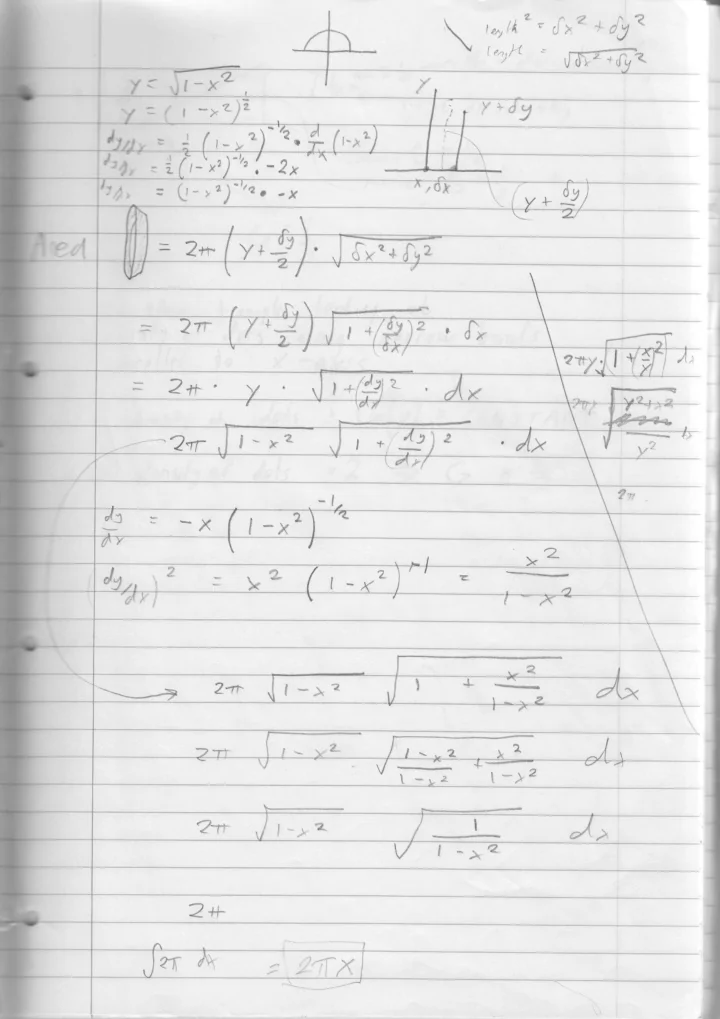 length² = δx² + δy²
length = √(δx² + δy²)
y = √(1-x²)
y = (1-x²)^½
dy/dx = ½ (1-x²)^-1/2 · d/dx (1-x²)
dy/dx = ½ (1-x²)^-1/2 · -2x
dy/dx = (1-x²)^-1/2 · -x
y
y+δy
x, δx
(y + δy/2)
Area = 2π (y + δy/2) · √(δx² + δy²)
= 2π (y + δy/2) √(1 + (δy/δx)²) · δx
2πy · √(1 + (x/y)²) dx
= 2π · y · √(1 + (dy/dx)²) · dx
2πy √((y²+x²)/y²) dx
2π √(1-x²) √(1 + (dy/dx)²) · dx
2π
dy/dx = -x (1-x²)^-1/2
(dy/dx)² = x² (1-x²)^-1 = x²/(1-x²)
2π √(1-x²) √(1 + x²/(1-x²)) dx
2π √(1-x²) √((1-x²)/(1-x²) + x²/(1-x²)) dx
2π √(1-x²) √(1/(1-x²)) dx
2π
∫2π dx = 2πx